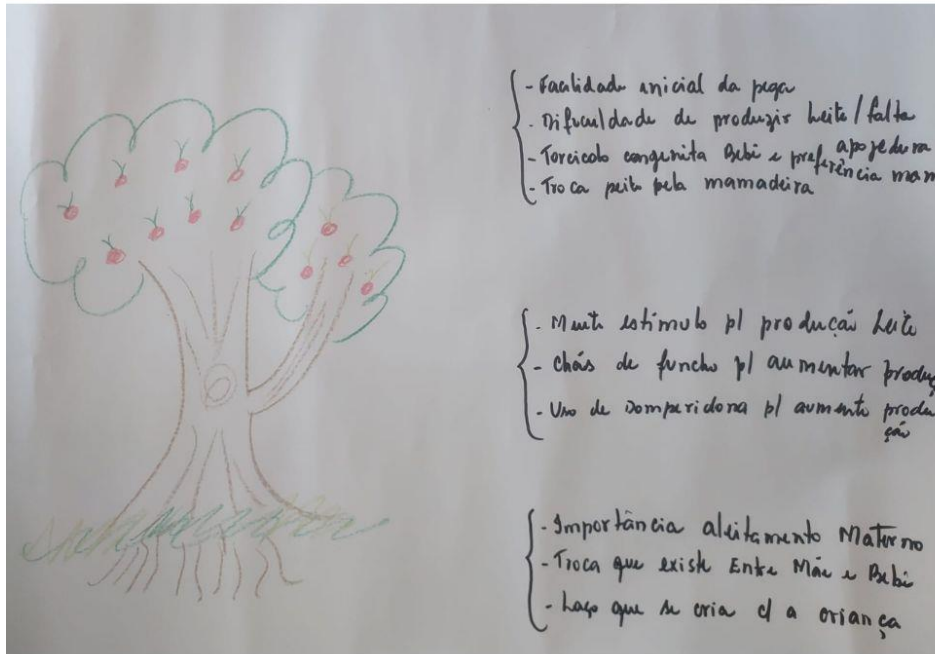 - Facilidade inicial da pega
- Dificuldade de produzir Leite/falta
apojedura
- Torcicolo congenita Bebê e preferência mam
- Troca peito pela mamadeira
- Muito estímulo p/ produção Leite
- Chás de funcho p/ aumentar produç
- Uso de Domperidona p/ aumento produ
ção
- Importância aleitamento Materno
- Troca que existe Entre Mãe e Bebê
- Laço que se cria c/ a criança